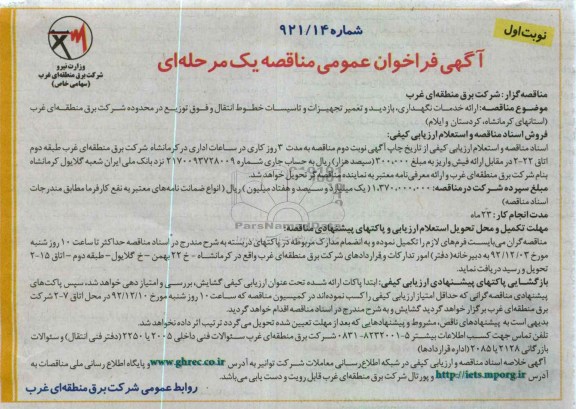 نوبت اول
شماره ۹۲۱/۱۴
وزارت نیرو
شرکت برق منطقه‌ای غرب
(سهامی خاص)
آگهی فراخوان عمومی مناقصه یک مرحله‌ای
مناقصه گزار: شرکت برق منطقه‌ای غرب
موضوع مناقصه: ارائه خدمات نگهداری، بازدید و تعمیر تجهیزات و تاسیسات خطوط انتقال و فوق توزیع در محدوده شرکت برق منطقه‌ای غرب
(استانهای کرمانشاه، کردستان و ایلام)
فروش اسناد مناقصه و استعلام ارزیابی کیفی:
اسناد مناقصه و استعلام ارزیابی کیفی از تاریخ چاپ آگهی نوبت دوم مناقصه به مدت ۳ روز کاری در ساعات اداری در کرمانشاه شرکت برق منطقه‌ای غرب طبقه دوم
اتاق ۲۲-۲ در مقابل ارائه فیش واریز به مبلغ ۳۰۰،۰۰۰ (سیصد هزار) ریال به حساب جاری شماره ۲۱۷۰۰۹۳۷۲۸۰۰۹ نزد بانک ملی ایران شعبه گلایول کرمانشاه
بنام شرکت برق منطقه‌ای غرب و ارائه معرفی‌نامه معتبر به نماینده مناقصه‌گر تحویل خواهد شد.
مبلغ سپرده شرکت در مناقصه: ۱،۳۷۰،۰۰۰،۰۰۰ (یک میلیارد و سیصد و هفتاد میلیون) ریال (انواع ضمانت نامه‌های معتبر به نفع کارفرما مطابق مندرجات
اسناد مناقصه)
مدت انجام کار: ۲۳ ماه
مهلت تکمیل و محل تحویل استعلام ارزیابی و پاکتهای پیشنهادی مناقصه:
مناقصه گران می‌بایست فرم‌های لازم را تکمیل نموده و به انضمام مدارک مربوطه در پاکتهای دربسته به شرح مندرج در اسناد مناقصه حداکثر تا ساعت ۱۰ روز شنبه
مورخ ۹۲/۱۲/۰۳ به دبیرخانه (دفتر) امور تدارکات و قراردادهای شرکت برق منطقه‌ای غرب واقع در کرمانشاه - خ ۲۲ بهمن - خ گلایول - طبقه دوم - اتاق ۱۵-۲
تحویل و رسید دریافت نماید.
بازگشایی پاکتهای پیشنهادی ارزیابی کیفی: ابتدا پاکات ارائه شده تحت عنوان ارزیابی کیفی گشایش، بررسی و امتیاز دهی خواهد شد، سپس پاکت‌های
پیشنهادی مناقصه گرانی که حداقل امتیاز ارزیابی کیفی را کسب نموده‌اند در کمیسیون مناقصه که ساعت ۱۰ روز شنبه مورخ ۹۲/۱۲/۱۰ در محل اتاق ۷-۲ شرکت
برق منطقه‌ای غرب برگزار خواهد گردید گشایش و به شرح مندرج در اسناد مناقصه اقدام خواهد گردید.
بدیهی است به پیشنهادهای ناقص، مشروط و پیشنهادهایی که بعد از مهلت تعیین شده تحویل می‌گردد ترتیب اثر داده نخواهد شد.
تلفن تماس جهت کسب اطلاعات بیشتر ۵-۸۲۳۲۰۰۱-۰۸۳۱ شرکت برق منطقه‌ای غرب سئوالات فنی داخلی ۲۰۰۵ یا ۲۲۵۰ (دفتر فنی انتقال) و سئوالات
بازرگانی ۲۱۲۸ یا ۲۰۸۵ (اداره قراردادها)
آگهی خلاصه اسناد مناقصه و ارزیابی کیفی در شبکه اطلاع‌رسانی معاملات شرکت توانیر به آدرس www.ghrec.co.ir و پایگاه اطلاع رسانی ملی مناقصات به
آدرس http://iets.mporg.ir و پورتال شرکت برق منطقه‌ای غرب قابل رویت و دست یابی می‌باشد.
روابط عمومی شرکت برق منطقه‌ای غرب